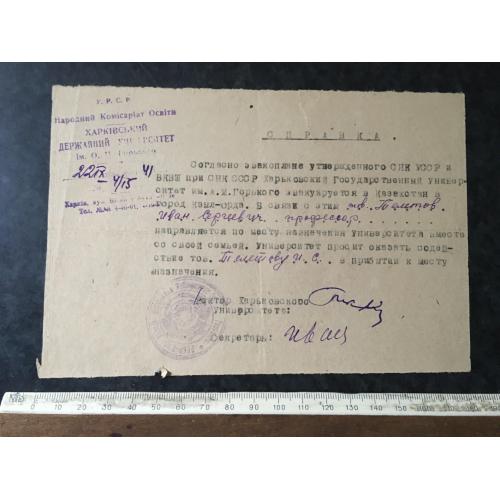 У. Р. С. Р
Народний Комісаріат Освіти
ХАРКІВСЬКИЙ
ДЕРЖАВНИЙ УНІВЕРСИТЕТ
Ім. О.
22 IX 41
4/15
Харків, вул.
Тел.
СПРАВКА.
Согласно эвакоплане утвержденного СНК УССР и
ВКВШ при СНК СССР Харьковский Государственный Универ-
ситет им. А.М. Горького эвакуируется в Казахстан в
город Кзыл-орда. В связи с этим тов.
Иван Сергеевич. профессор.
направляется по месту назначения Университета вместе
со своей семьей. Университет просит оказать содей-
ствие тов. И.С.. в прибытии к месту
назначения.
Ректор Харьковского
Университета:
Секретарь:
0 10 20 30 40 50 60 70 80 90 100 110 120 130 140 150 160 170 180